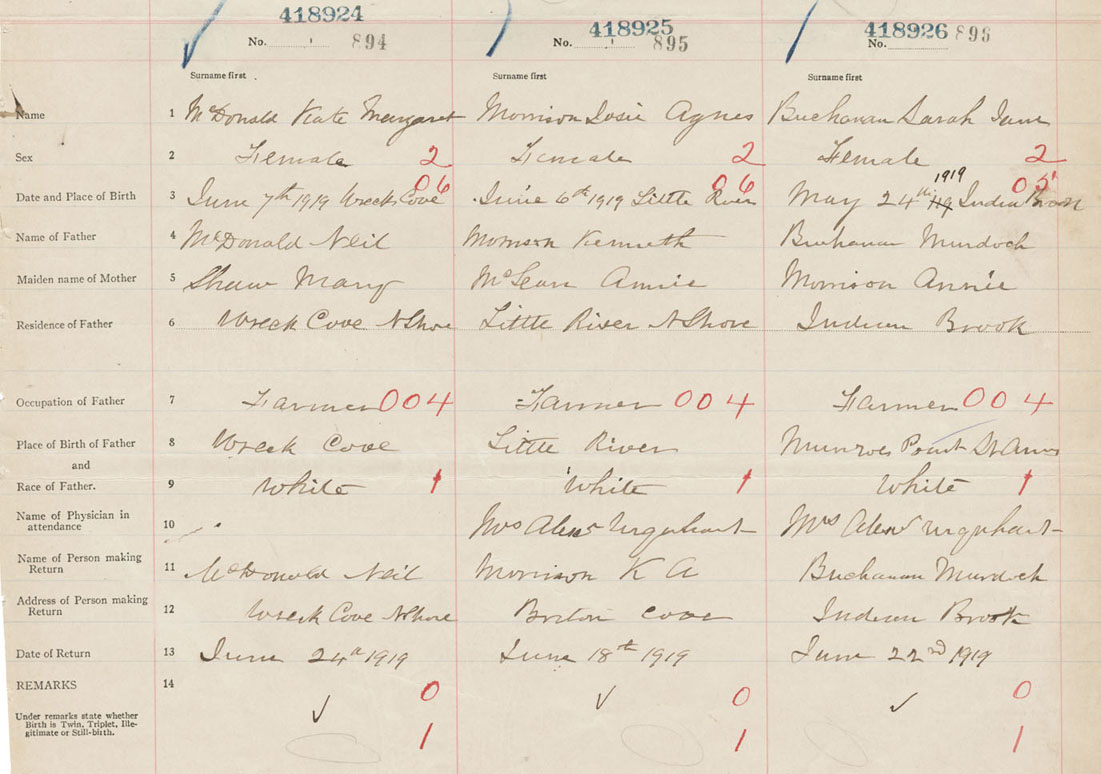 418924 418925 418926
No. 894 No. 895 No. 896
Surname first Surname first Surname first
Name 1 McDonald Kate Margaret Morrison Josie Agnes Buchanan Sarah Jane
Sex 2 Female 2 Female 2 Female 2
06 06 1919 05
Date and Place of Birth 3 June 7th 1919 Wreck Cove June 6th 1919 Little River May 24th Indian Brook
Name of Father 4 McDonald Neil Morrison Kenneth Buchanan Murdoch
Maiden name of Mother 5 Shaw Mary McLean Annie Morrison Annie
Residence of Father 6 Wreck Cove N Shore Little River N Shore Indian Brook
Occupation of Father 7 Farmer 004 Farmer 004 Farmer 004
Place of Birth of Father 8 Wreck Cove Little River Munroes Point St Anns
and
Race of Father. 9 White 1 White 1 White 1
Name of Physician in
attendance 10 Mrs Alex Urquhart Mrs Alex Urquhart
Name of Person making
Return 11 McDonald Neil Morrison K A Buchanan Murdoch
Address of Person making
Return 12 Wreck Cove N Shore Breton Cove Indian Brook
Date of Return 13 June 24th 1919 June 18th 1919 June 22nd 1919
REMARKS 14 0 0 0
Under remarks state whether
Birth is Twin, Triplet, Ille-
gitimate or Still-birth. 1 1 1